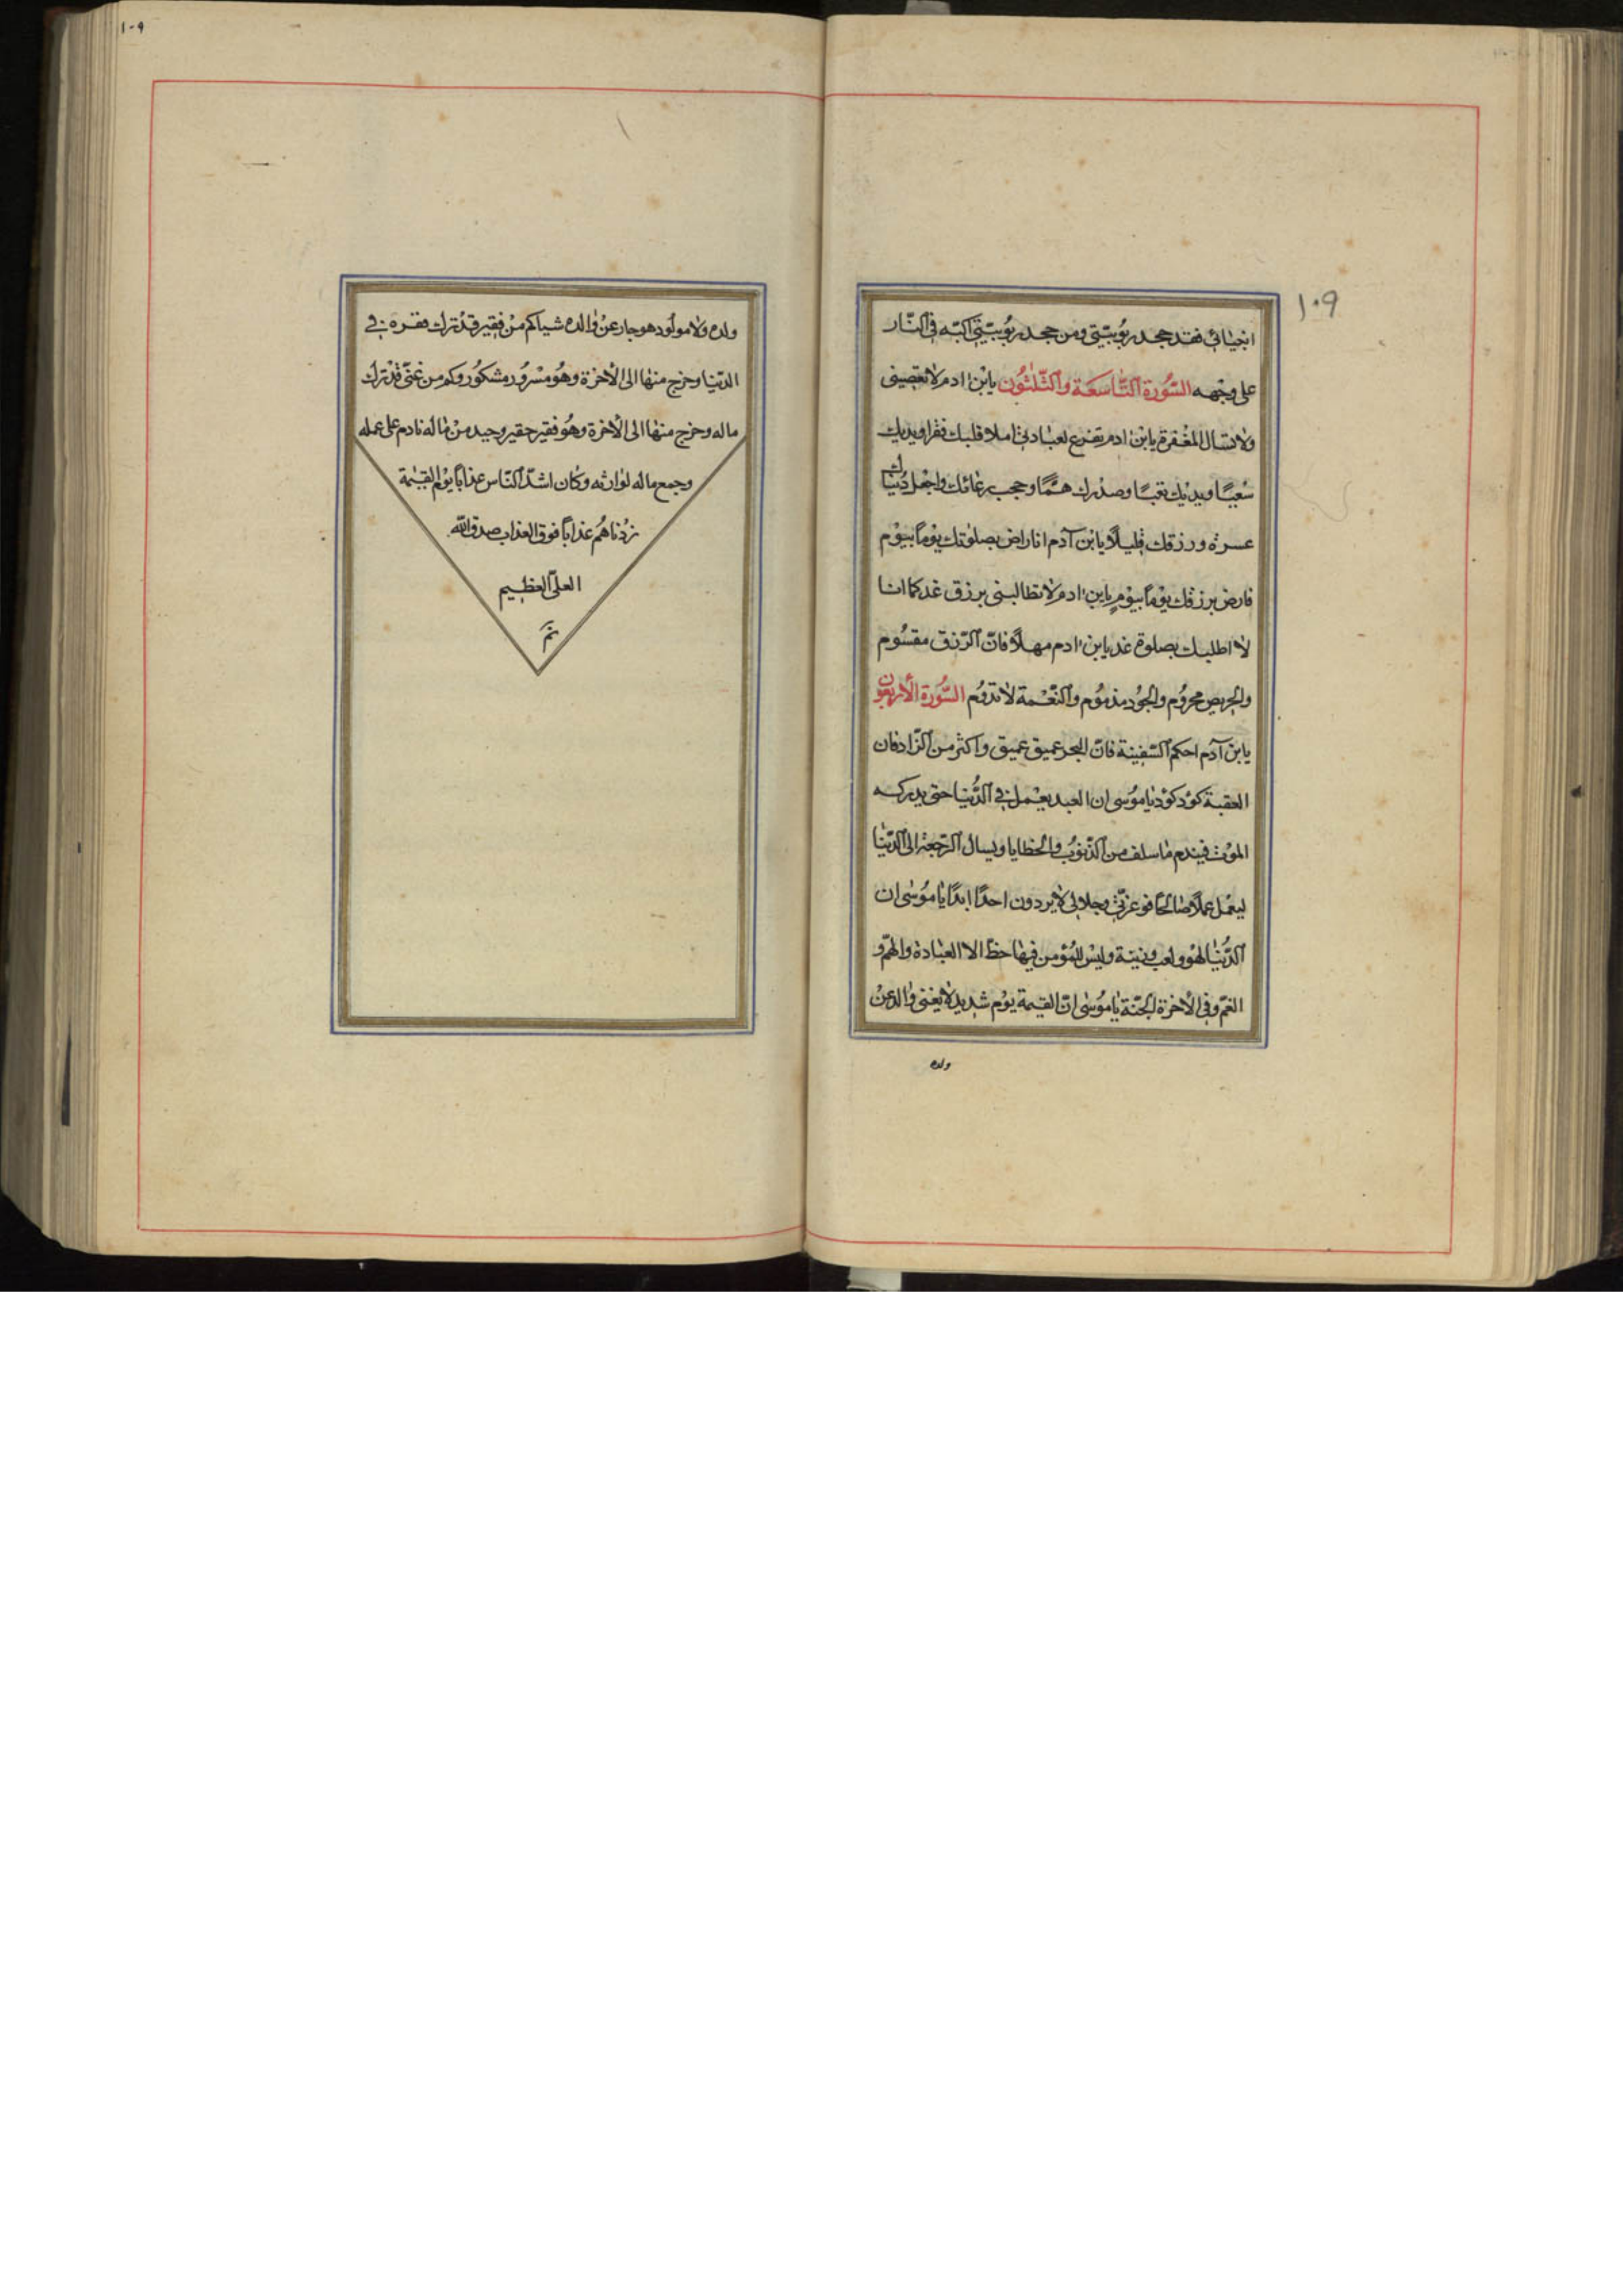 ١٠٩
انبيائي فقد جحد ربوبيّتي ومن جحد ربوبيّتي اكبّه في النّار
على وجهه السّورة التّاسعة والثّلثون يا بن ادم لا تعصيني
ولا تسال المغفرة يا بن ادم تفرع لعبادتي املا قلبك فقرا ويديك
شعبًا وبدنك تعبًا وصدرك همًّا وحجب دعائك واجعل دنياك
عسرة ورزقك قليلًا يا بن آدم انا راض بصلوتك يومًا بيوم
فارض برزقك يومًا بيومٍ يا بن ادم لا تطالبني برزق غد كما انا
لا اطلبك بصلوة غد يا بن ادم مهلًا فانّ الرّزق مقسُوم
والحريص محروُم والجود مذموُم والنّعمة لا تدوُم السّورة الأربعون
يا بن آدم احكم السّفينة فانّ البحر عميق عميق واكثر من الزّاد فان
العقبة كؤد كؤد يا موسى ان العبد يعمل في الدّنيا حتى يدركه
الموت فيندم ما سلف من الذّنوب والخطايا ويسال الرّجعة الى الدّنيا
ليعمل عملًا صالحًا فو عزّتي وجلالي لا يردون احدًا ابدًا يا موسى ان
الدّنيا لهو ولعب وزينة وليس للمؤمن فيها حظ الا العبادة والهمّ و
الغمّ وفي الأخرة الجنّة يا موسى انّ القيمة يوم شديد لا يغنى والد عن
ولده
١٠٩
ولده ولا مولود هو جاز عن والده شيا كم من فقير قد ترك فقره في
الدّنيا وخرج منها الى الأخرة وهو مسرور مشكور وكم من غنيّ قد ترك
ماله وخرج منها الى الأخرة وهو فقير حقير وحيد من ماله نادم على عمله
وجمع ماله لوارثه وكان اشدّ النّاس عذابًا يوم القيمة
زدناهم عذابًا فوق العذاب صدق الله
العليّ العظيم
تم